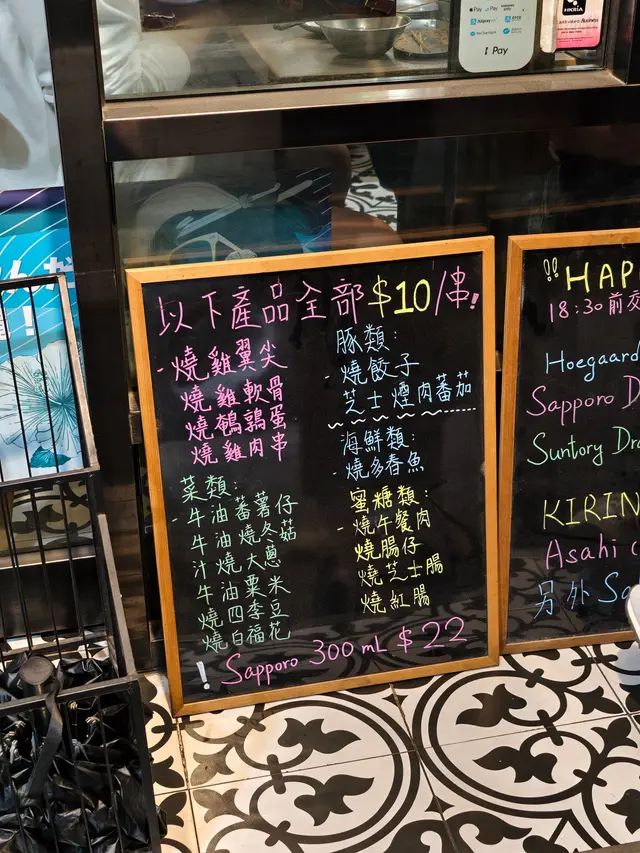 Pay
Pay
Pay
HKRIA
以下產品全部$10/串!
- 燒雞翼尖
燒雞軟骨
燒鵪鶉蛋
燒雞肉串
菜類:
- 牛油蕃薯仔
牛油燒冬菇
汁燒大蔥
牛油粟米
燒四季豆
燒白福花
豚類:
- 燒餃子
芝士煙肉蕃茄
海鮮類:
- 燒多春魚
蜜糖類:
- 燒午餐肉
燒腸仔
燒芝士腸
燒紅腸
! Sapporo 300mL $22
!! HAP
18:30前
Hoegaard
Sapporo D
Suntory Dr
KIRIN
Asahi
另外 S